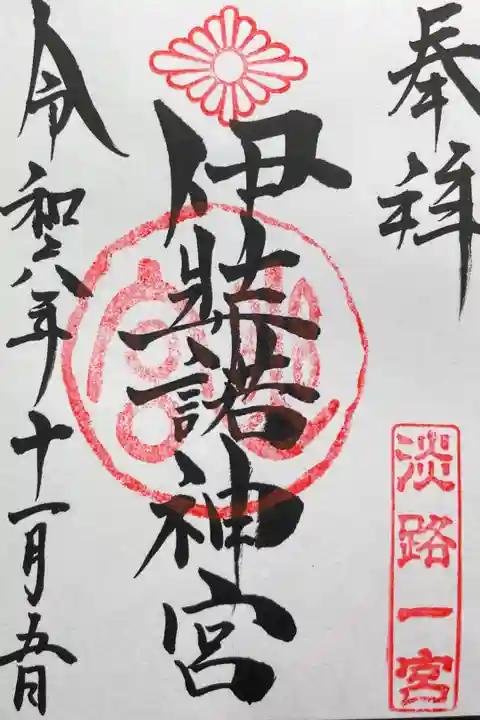 奉拝
淡路一宮
伊弉諾神宮
令和六年十一月五日